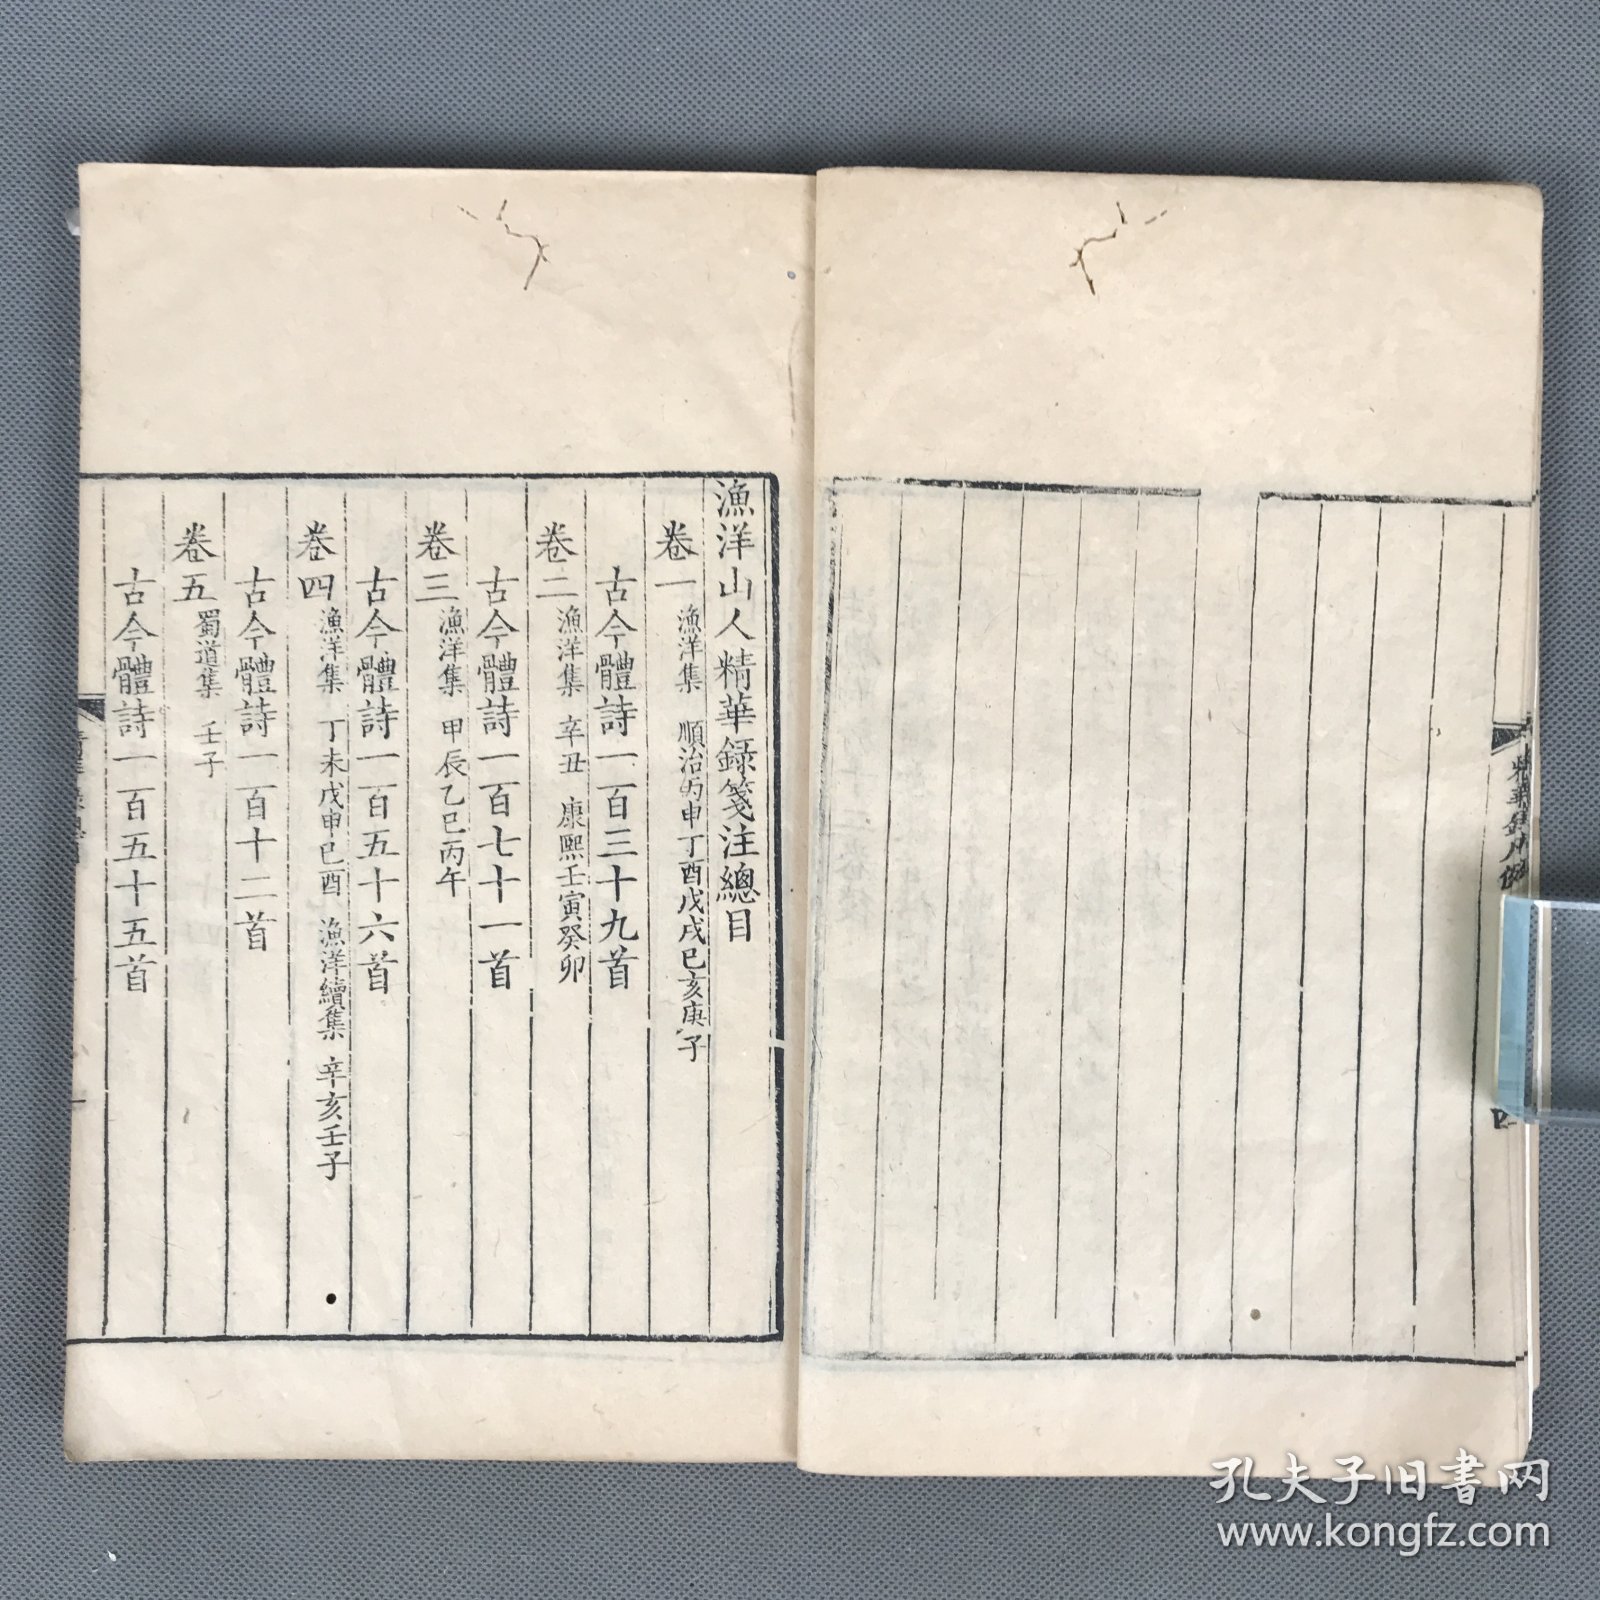 漁洋山人精華錄箋注總目
卷一 漁洋集 順治丙申丁酉戊戌已亥庚子
古今體詩一百三十九首
卷二 漁洋集 辛丑 康熙壬寅癸卯
古今體詩一百七十一首
卷三 漁洋集 甲辰乙巳丙午
古今體詩一百五十六首
卷四 漁洋集 丁未戊申已酉 漁洋續集 辛亥壬子
古今體詩一百十二首
卷五 蜀道集 壬子
古今體詩一百五十五首
精華錄凡例
四
孔夫子旧书网
www.kongfz.com